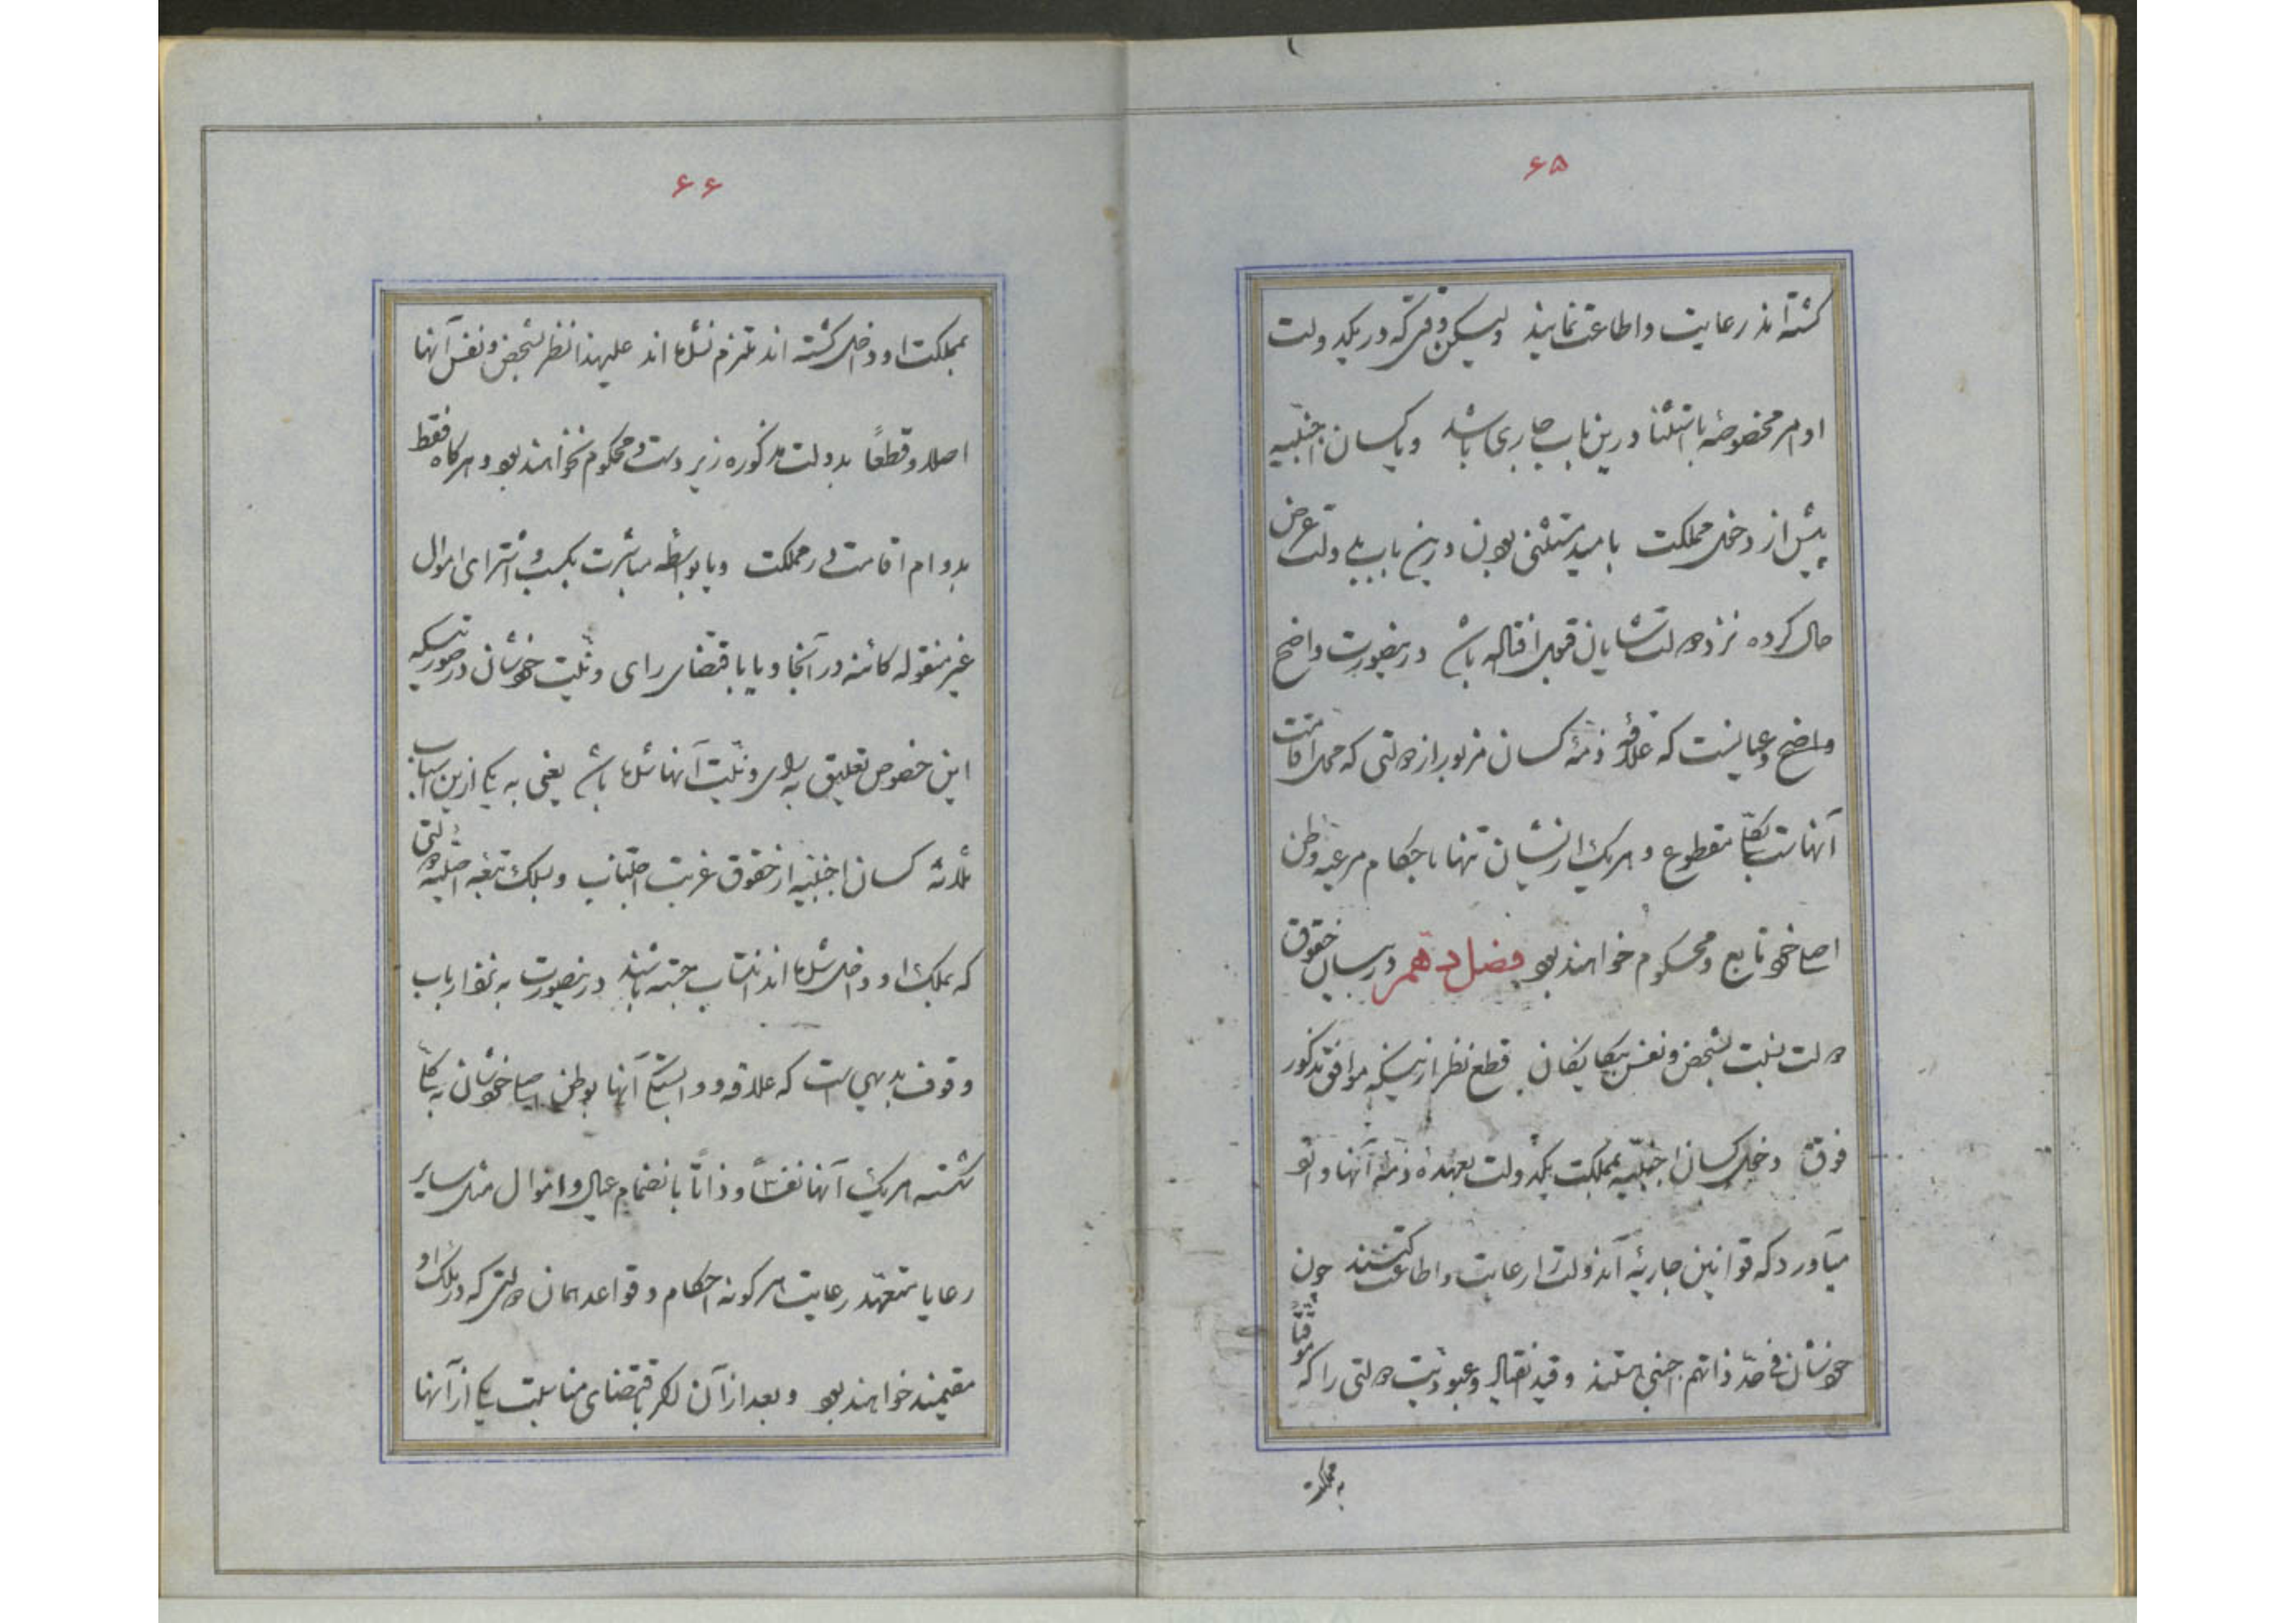 ۶۵
کشته‌اند رعایت و اطاعت نمایند ولیکن وقتی که در یکدولت
اوامر مخصوصهٔ باستثنا درین باب جاری باشد و یا کسان اجنبیه
پیش از دخل مملکت بامید مستثنی بودن درین باب بدولت عرض
حال کرده نزد دولت شایان قبول اقتاله باشد درینصورت واضح
واضح و عیانست که علاقهٔ ذمهٔ کسان مزبور از دولتی که محل اقامت
آنهاست بکلی مقطوع و هر یک از ایشان تنها باحکام مرعیهٔ وطن
اصلی خود تابع و محکوم خواهند بود فصل دهم در بیان حقوق
دولت نسبت بشخص و نفس بیکانکان قطع نظر ازینکه موافق مذکور
فوق دخول کسان اجنبیه بمملکت یکدولت بعهدهٔ ذمهٔ آنها وا تو
میآورد که قوانین جاریهٔ آندولت را رعایت و اطاعت کنند چون
خودشان فی حد ذاتهم اجنبی هستند و قید انقیاد و عبودیت دولتی را که موقتاً
به مملکت
۶۶
بمملکت او داخل کشته اند ملتزم نشده اند علیهذا نظر بشخص و نفس آنها
اصلا و قطعاً بدولت مذکوره زیر دست و محکوم نخواهند بود و هر کاه فقط
بدوام اقامت در مملکت و یا بواسطه مباشرت بکسب و اشترای اموال
غیر منقوله کائنه در آنجا و یا باقتضای رای و نیت خودشان در صورتیکه
این خصوص تعلیق به رای و نیت آنها شده باشد یعنی به یکی ازین اسباب
ثلاثه کسان اجنبیه از حقوق غربت اجتناب و بسلک تبعه اصلیه دولتی
که بملک او داخل شده اند انتساب جسته باشند درینصورت به نزد ارباب
وقوف بدیهی است که علاقه و وابستکی آنها بوطن اصلی خودشان به کلی
کسسته هر یک آنها نفساً و ذاتاً بانضمام عیال و اموال مثل سایر
رعایا متعهد رعایت هر کونه احکام و قواعد همان دولتی که در ملک او
مقیمند خواهند بود و بعد از آن اکر باقتضای مناسبت یکی از آنها